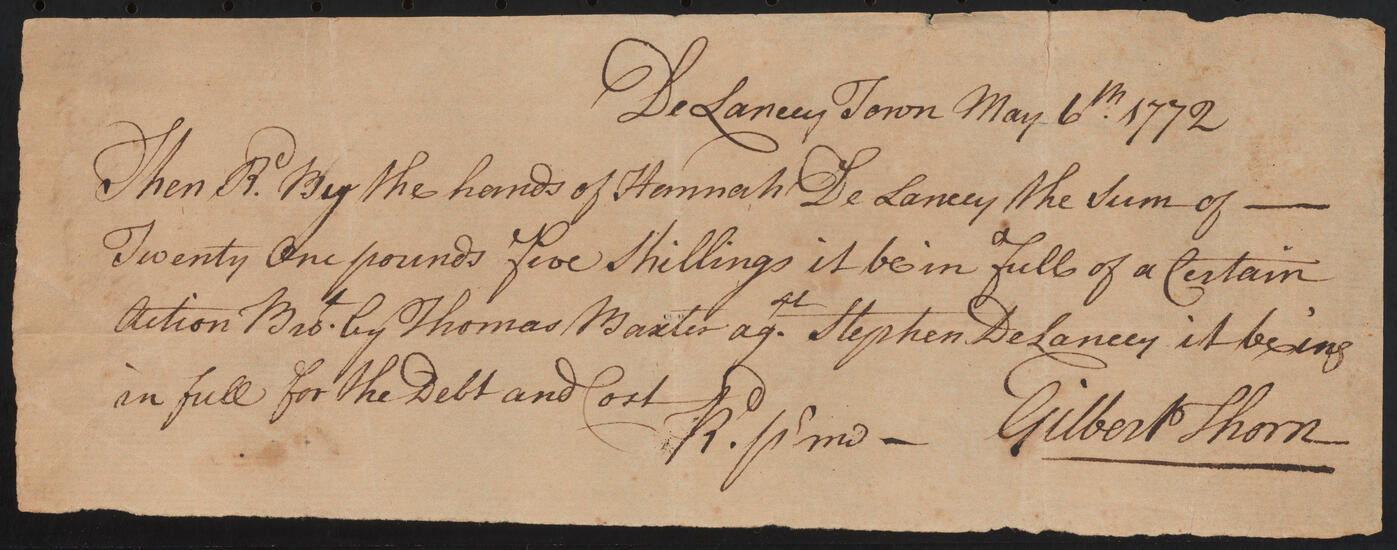 De Lancey Town May 6th. 1772
Then Rd. By the hands of Hannah De Lancey the Sum of —
Twenty One pounds five Shillings it bein full of a Certain
Action Brot. by Thomas Baxter agst. Stephen DeLancey it being
in full for the Debt and Cost
Rd. pr me — Gilbert Thorn